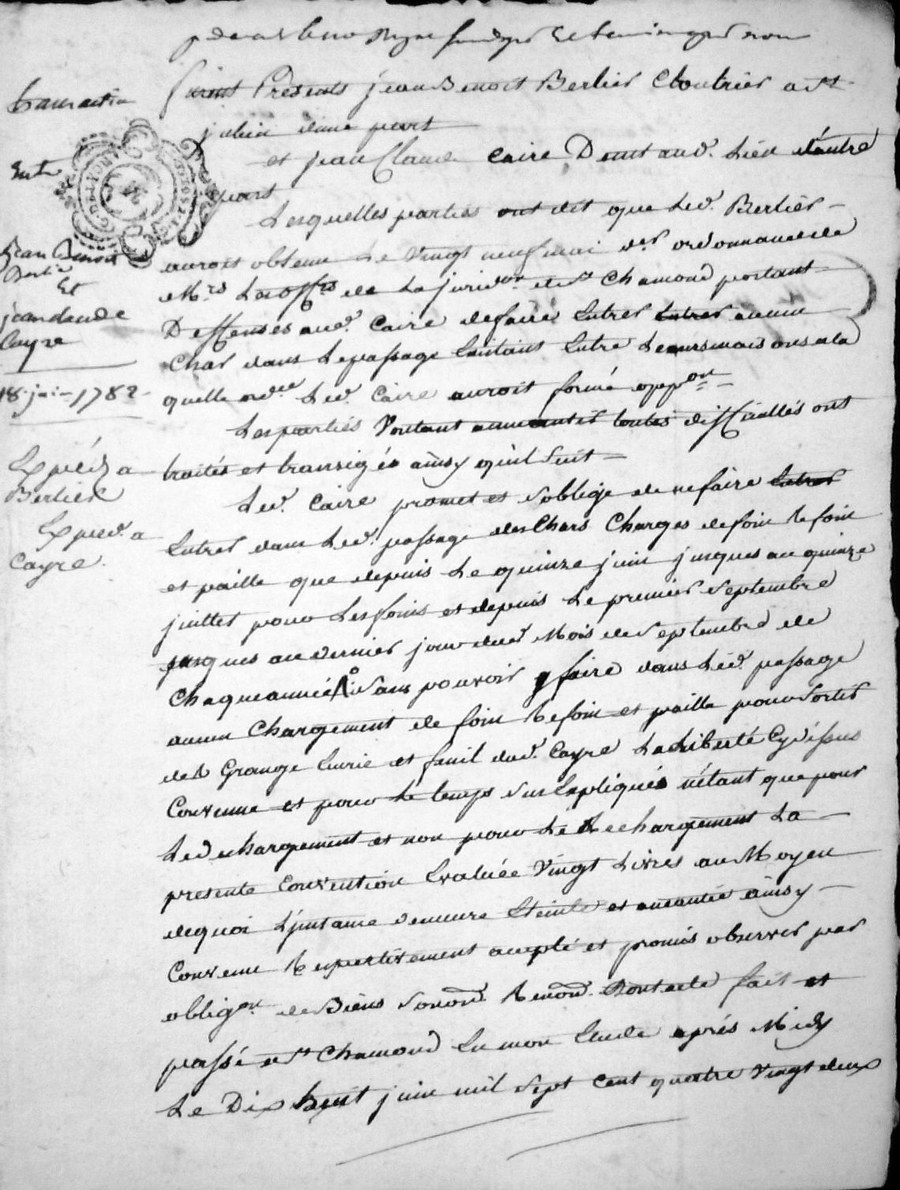 pdevant le no Royal soussigné et temoins après nom
furent Presents jean Benoit Berlier Cloutrier a st
julien d'une part
et jean Claude Caire Demt aud. Lieu d'autre
part
Lesquelles parties ont dit que Led. Berlier
auroit obtenu Le Vingt neuf mai der ordonnance de
Mrs Les offrs de La juridon de st Chamond portant
Deffenses aud. Caire de faire Entrer Entrer aucun
Char dans Le passage
quelle ordce Led. Caire auroit formé oppon
Les parties Voulant aneantir toutes difficultés ont
traités et transigés ainsy qu'il suit
Led. Caire promet et s'oblige de ne faire Entrer
Entrer dans Led. passage des Chars Chargés de foin Refoin
et paille que depuis Le quinze juin jusques au quinze
juillet pour Les foins et depuis Le premier Septembre
jusques au dernier jour dud. Mois de Septembre de
Chaque année sans pouvoir y faire dans Led. passage
aucun Chargement de foin Refoin et paille pour sortir
des Grange Ecurie et fenil dud. Cayre La Liberté Cy dessus
Convenue et pour Le temps sus Expliqué n'étant que pour
Le dechargement et non pour Le Rechargement La
presente Convention Evaluée Vingt Livres au Moyen
de quoi L'instance demeure Eteinte et aneantie ainsy
Convenu Respectivement accepté et promis observer par
obligon de Biens soumon. Renon. Dont acte fait et
passé a st Chamond En mon Etude après Midy
Le Dix huit juin mil sept cent quatre Vingt deux
transaction
Entre
jean Benoit
Berlier
Et
jean claude
Cayre
18 juin 1782
Expédié a
Berlier
Expedié a
Cayre.